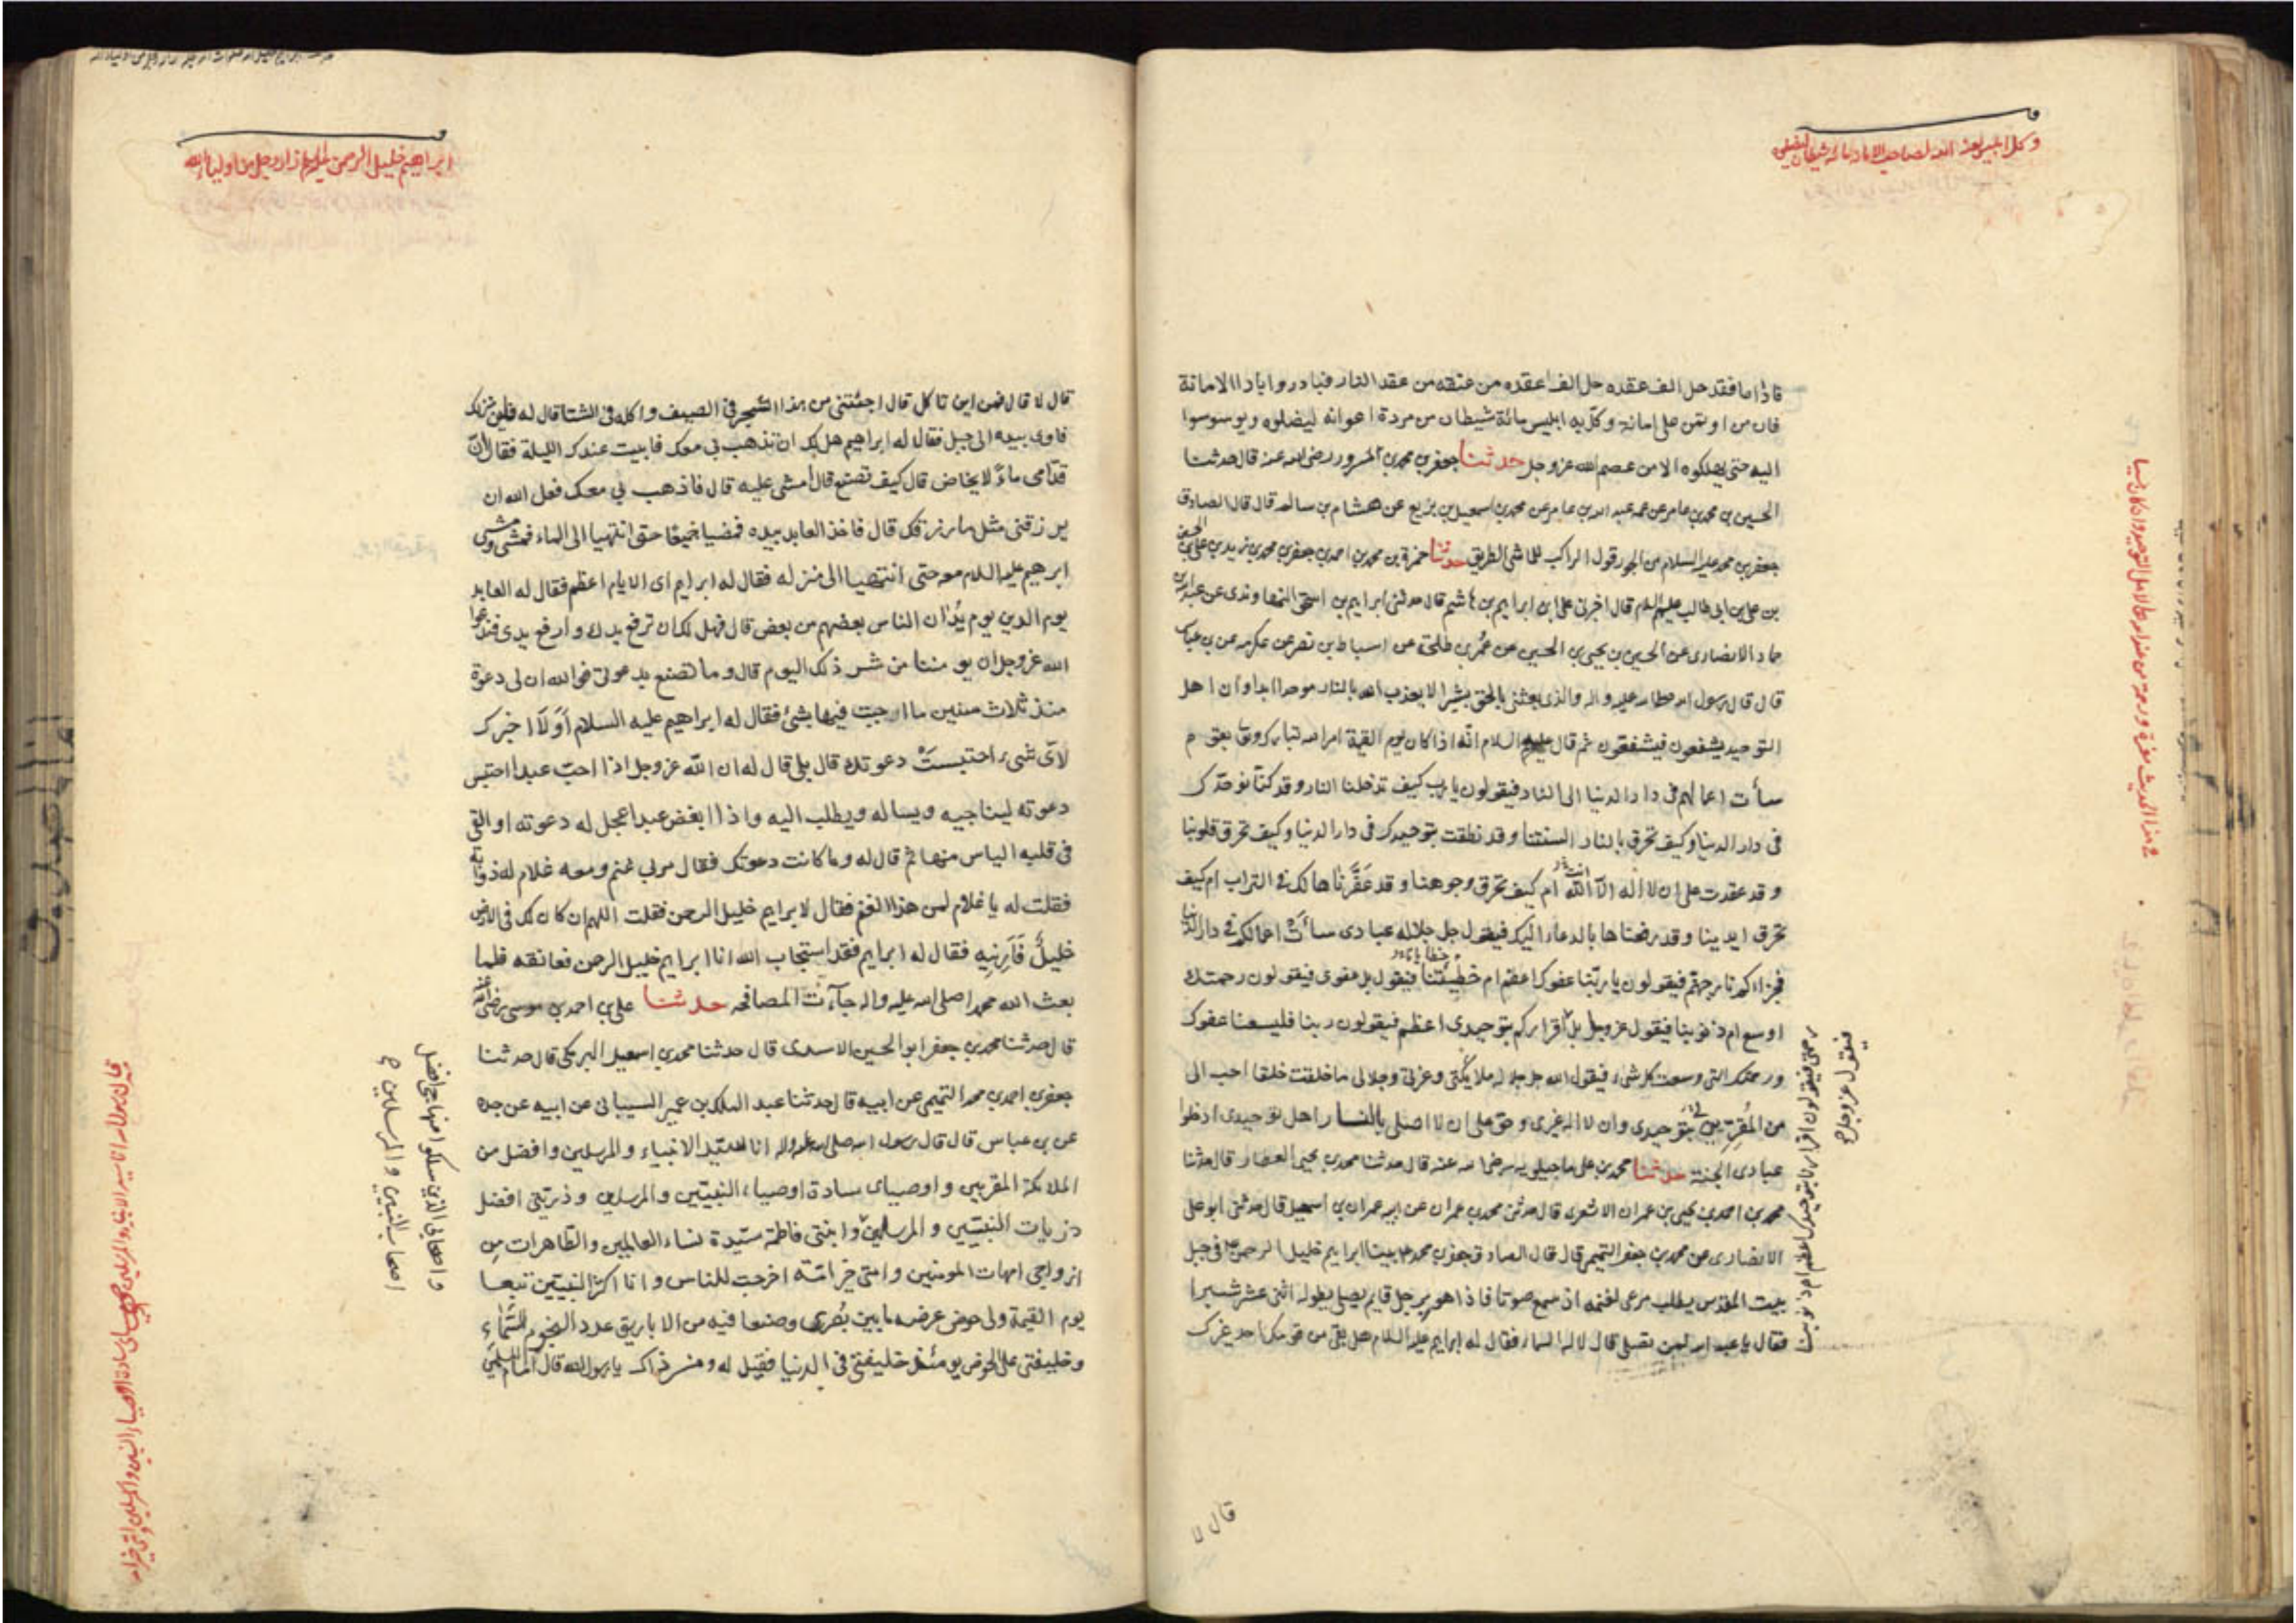 وكل ابليس لعنه الله لصاحب الامانة مائة شيطان ليضلوه
فاذا اداها فقد حل الف عقده حل الف عقده من عنقه من عقد النار فبادروا باداء الامانة
فان من اوتمن على امانة وكل به ابليس مائة شيطان من مردة اعوانه ليضلوه ويوسوسوا
اليه حتى يهلكوه الا من عصم الله عز وجل حدثنا جعفر بن محمد بن المسرور رضى الله عنه قال حدثنا
الحسين بن محمد بن عامر عن عمه عبد الله بن عامر عن محمد بن اسمعيل بن بزيع عن هشام بن سالم قال قال الصادق
جعفر بن محمد عليه السلام من الجور قول الراكب للماشى الطريق حدثنا حمزة بن محمد بن احمد بن جعفر بن محمد بن زيد بن على بن الحسين
بن على بن ابى طالب عليهم السلام قال اخبرنى على بن ابراهيم بن هاشم قال حدثنى ابراهيم بن اسحق النهاوندى عن عبد الله بن
حماد الانصارى عن الحسين بن يحيى بن الحسين عن عمرو بن طلحة عن اسباط بن نصر عن عكرمه عن بن عباس
قال قال رسول الله صلى الله عليه واله والذى بعثنى بالحق بشيرا لا يعذب الله بالنار موحدا ابدا وان اهل
التوحيد يشفعون فيشفعون ثم قال عليه السلام انه اذا كان يوم القيمة امر الله تبارك وتعالى بقوم
سأت اعمالهم فى دار الدنيا الى النار فيقولون يا رب كيف تدخلنا النار وقد كنا نوحدك
فى دار الدنيا وكيف تحرق بالنار السنتنا وقد نطقت بتوحيدك فى دار الدنيا وكيف تحرق قلوبنا
وقد عقدت على ان لا اله الا الله انت ام كيف تحرق وجوهنا وقد عفرناها لك فى التراب ام كيف
تحرق ايدينا وقد رفعناها بالدعاء اليك فيقول جل جلاله عبادى سأت اعمالكم فى دار الدنيا
فجزاءكم نار جهنم فيقولون يا ربنا عفوك اعظم ام خطيئتنا فيقول بل عفوى فيقولون رحمتك
اوسع ام ذنوبنا فيقول عز وجل بل اقراركم بتوحيدى اعظم فيقولون ربنا فليسعنا عفوك
ورحمتك التى وسعت كل شىء فيقول الله جل جلاله ملايكتى وعزتى وجلالى ما خلقت خلقا احب الى
من المقرين لى بتوحيدى وان لا اله غيرى وحق على ان لا اصلى بالنار اهل توحيدى ادخلوا
عبادى الجنة حدثنا محمد بن على ماجيلويه رضى الله عنه قال حدثنا محمد بن يحيى العطار قال حدثنا
محمد بن احمد بن يحيى بن عمران الاشعرى قال حدثنى محمد بن عمران عن ابيه عمران بن اسمعيل قال حدثنى ابو على
الانصارى عن محمد بن جعفر التميمى قال قال الصادق جعفر بن محمد بينا ابراهيم خليل الرحمن فى جبل
بيت المقدس يطلب مرعى لغنمه اذ سمع صوتا فاذا هو برجل قايم يصلى طوله اثنى عشر شبرا
فقال يا عبد الله لمن تصلى قال لاله السماء فقال له ابراهيم عليه السلام هل بقى من قومك احد غيرك
رحمتى فيقولون اقرارنا بتوحيدك اعظم ام ذنوبنا
فيقول عز وجل
قال لا
ابراهيم خليل الرحمن عليه السلام اراد رجل من اولياء الله
قال لا قال فمن اين تاكل قال اجتنى من هذا الشجر فى الصيف واكله فى الشتا قال له فاين منزلك
فاوى بيده الى جبل فقال له ابراهيم هل لك ان تذهب بى معك فابيت عندك الليلة فقال ان
قدامى ماء لا يخاض قال كيف تصنع قال امشى عليه قال فاذهب بى معك فعل الله ان
يرزقنى مثل ما رزقك قال فاخذ العابد بيده فمضيا جميعا حتى انتهيا الى الماء فمشى ومشى
ابرهيم عليه السلام معه حتى انتهيا الى منزله فقال له ابراهيم اى الايام اعظم فقال له العابد
يوم الدين يوم يدان الناس بعضهم من بعض قال فهل لك ان ترفع يدك وارفع يدى فندعوا
الله عز وجل ان يومننا من شر ذلك اليوم قال وما تصنع بدعوتى فوالله ان لى دعوة
منذ ثلاث سنين ما اجبت فيها بشئ فقال له ابراهيم عليه السلام اولا اخبرك
لاى شىء احتبست دعوتك قال بلى قال له ان الله عز وجل اذا احب عبدا احتبس
دعوته ليناجيه ويساله ويطلب اليه واذا ابغض عبدا عجل له دعوته او القى
فى قلبه الياس منها ثم قال له وما كانت دعوتك فقال مر بى غنم ومعه غلام له ذوابة
فقلت له يا غلام لمن هذا الغنم فقال لابراهيم خليل الرحمن فقلت اللهم ان كان لك فى الارض
خليل فارنيه فقال له ابراهيم فقد استجاب الله انا ابراهيم خليل الرحمن فعانقه فلما
بعث الله محمدا صلى الله عليه واله جاءت المصافحه حدثنا على بن احمد بن موسى رضى الله عنه
قال حدثنا محمد بن جعفر ابو الحسين الاسدى قال حدثنا محمد بن اسمعيل البرمكى قال حدثنا
جعفر بن احمد بن محمد التميمى عن ابيه قال حدثنا عبد الملك بن عمير السيبانى عن ابيه عن جده
عن بن عباس قال قال رسول الله صلى الله عليه واله انا سيد الانبياء والمرسلين وافضل من
الملائكة المقربين واوصياى سادة اوصياء النبيين والمرسلين وذريتى افضل
ذريات النبيين والمرسلين وابنتى فاطمة سيدة نساء العالمين والطاهرات من
ازواجى امهات المومنين وامتى خير امة اخرجت للناس وانا اكثر النبيين تبعا
يوم القيمة ولى حوض عرضه ما بين بصرى وصنعا فيه من الاباريق عدد النجوم السماء
وخليفتى على الحوض يومئذ خليفتى فى الدنيا فقيل له ومن ذاك يا رسول الله قال امام المسلمين
واصحابى الذين سلكوا منهاجى افضل
اصحاب النبيين والمرسلين